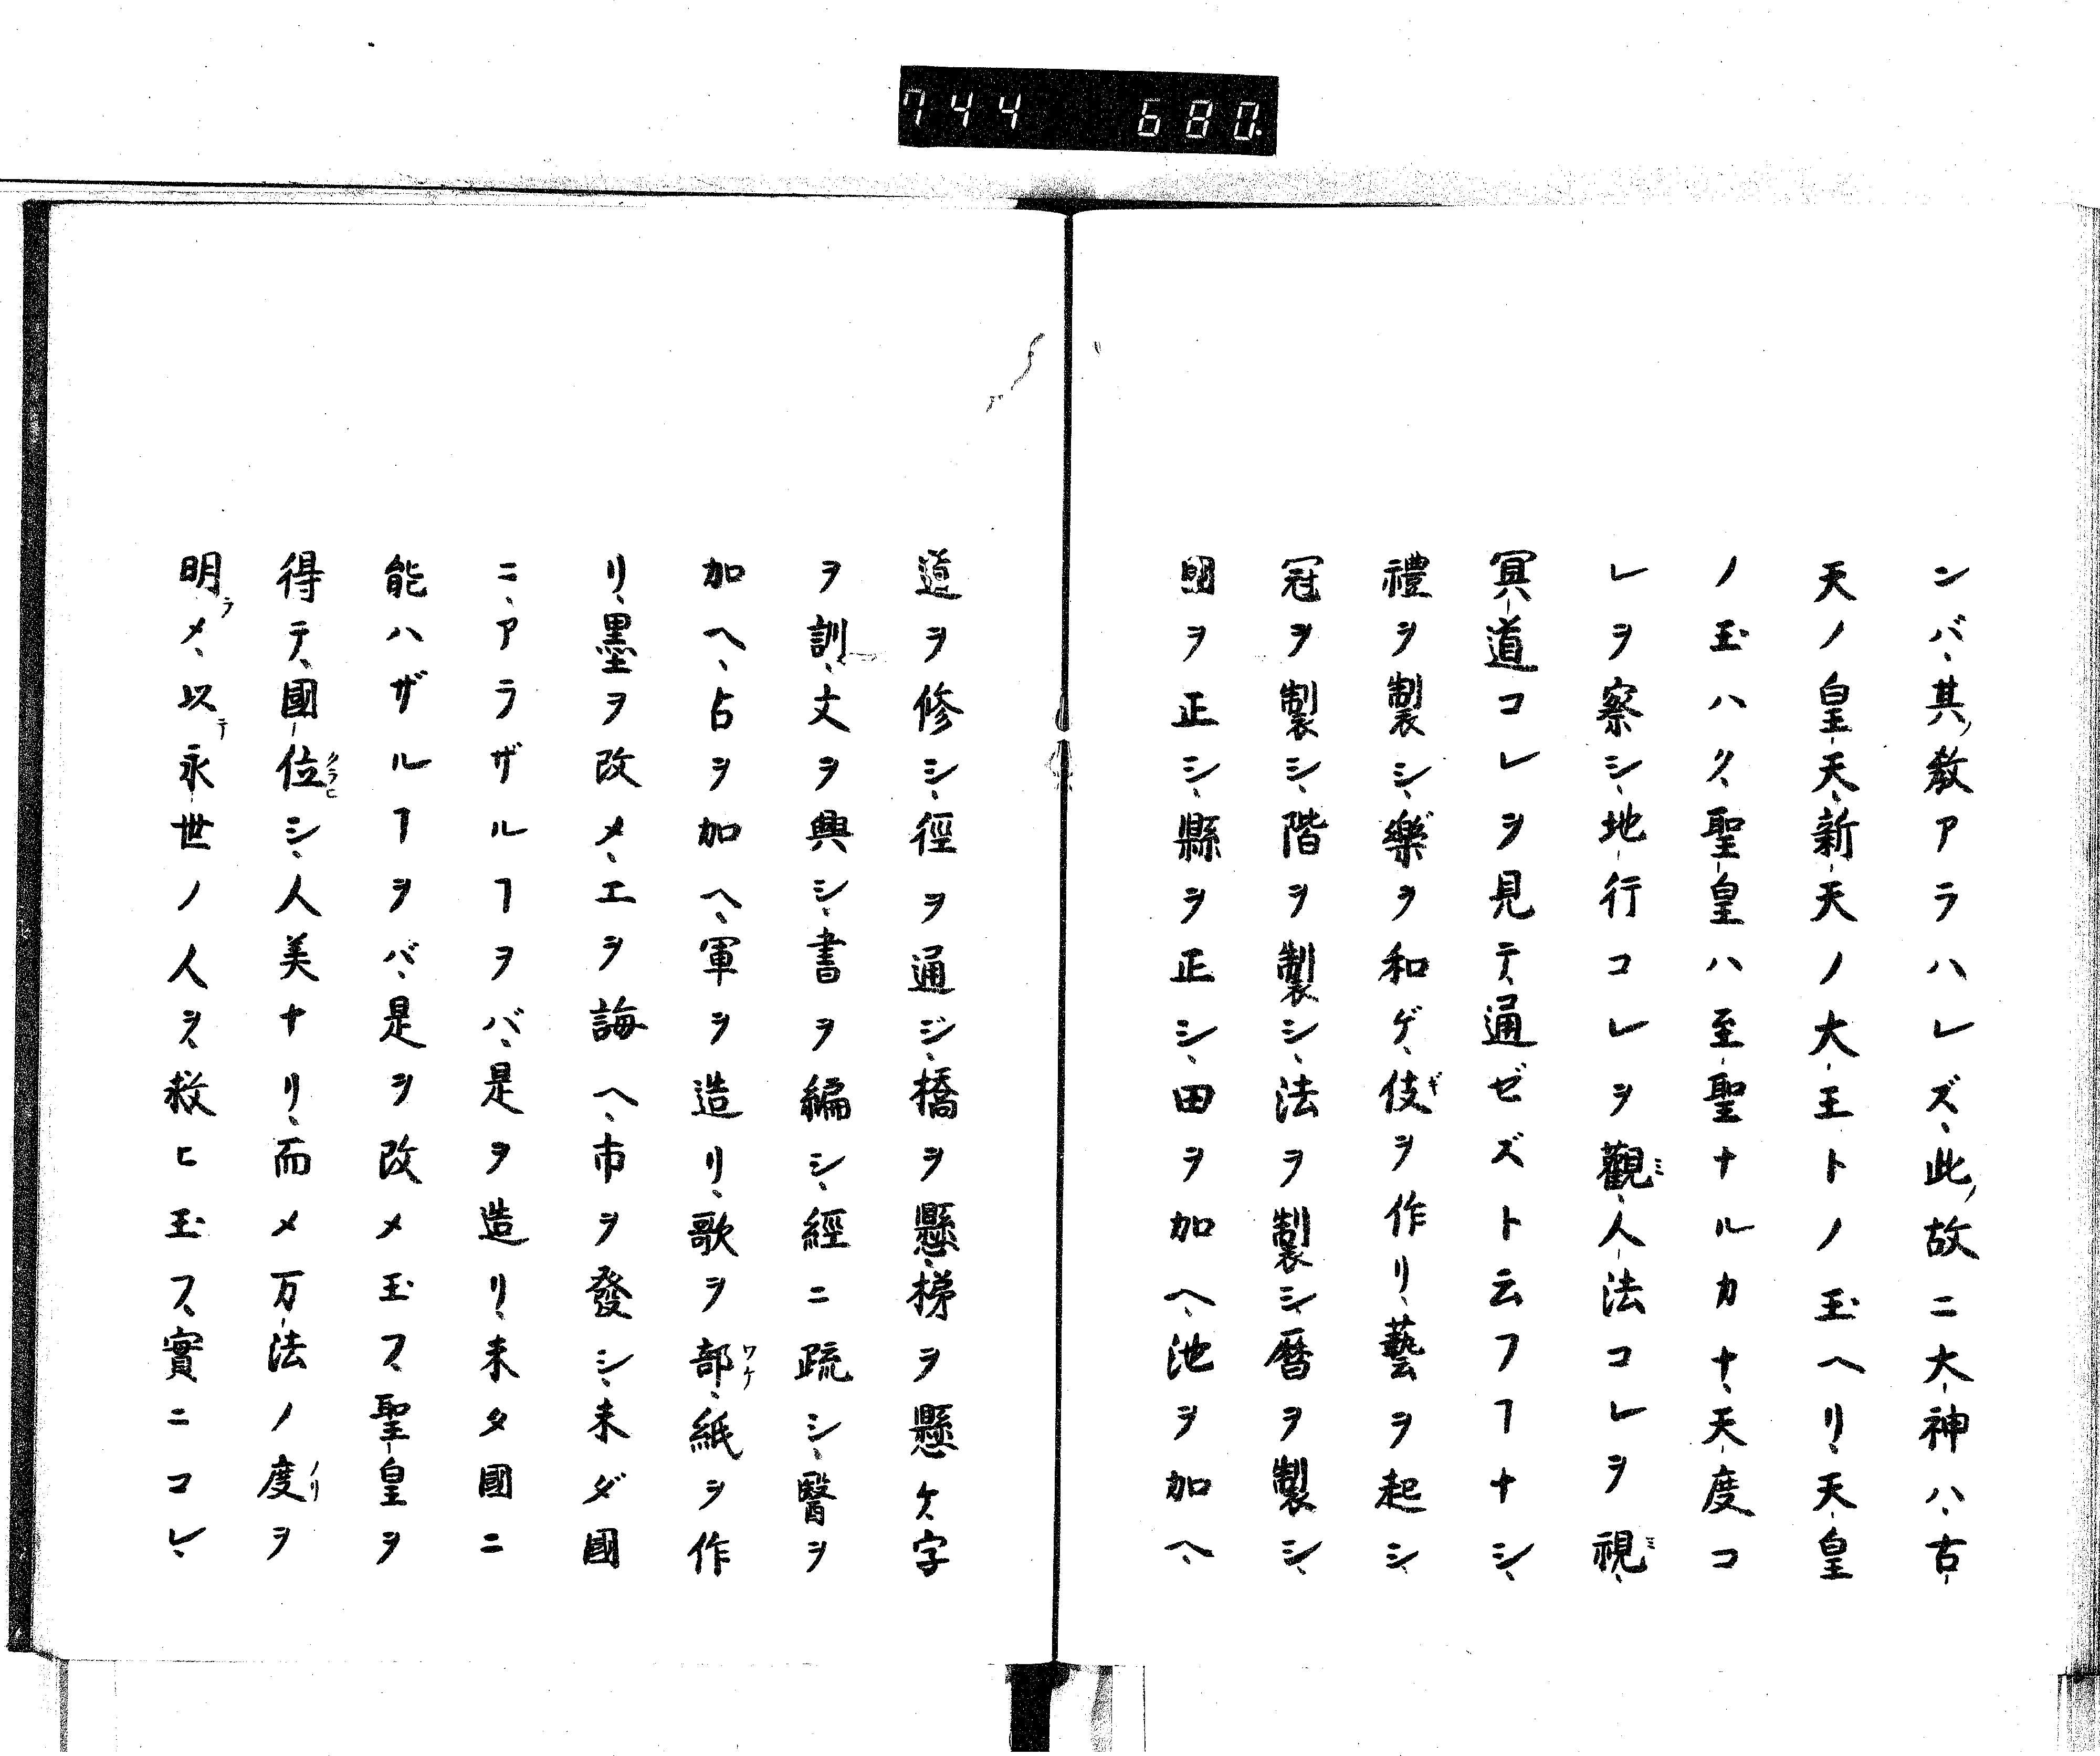 744 680.
ンバ、其ノ教アラハレズ、此ノ故ニ大神ハ、古
天ノ皇天、新天ノ大王トノ玉ヘリ、天皇
ノ玉ハク、聖皇ハ至聖ナルカナ、天度コ
レヲ察シ、地行コレヲ觀ミ、人法コレヲ視ミ、
冥道コレヲ見テ、通ゼズト云フヿナシ、
禮ヲ製シ、樂ヲ和ゲ、伎ギヲ作リ、藝ヲ起シ、
冠ヲ製シ、階ヲ製シ、法ヲ製シ、暦ヲ製シ、
國ヲ正シ、縣ヲ正シ、田ヲ加ヘ、池ヲ加ヘ、
道ヲ修シ、徑ヲ通ジ、橋ヲ懸、梯ヲ懸ケ、字
ヲ訓、文ヲ興シ、書ヲ編シ、經ニ疏シ、醫ヲ
加ヘ、占ヲ加ヘ、軍ヲ造リ、歌ヲ部ワケ、紙ヲ作
リ、墨ヲ改メ、工ヲ誨ヘ、市ヲ發シ、未ダ國
ニ、アラザルヿヲバ、是ヲ造リ、未タ國ニ
能ハザルヿヲバ、是ヲ改メ玉フ、聖皇ヲ
得テ、國位クラヒシ、人美ナリ、而メ万法ノ度ノリヲ
明ラメ、以テ永世ノ人ヲ、救ヒ玉フ、實ニコレ、